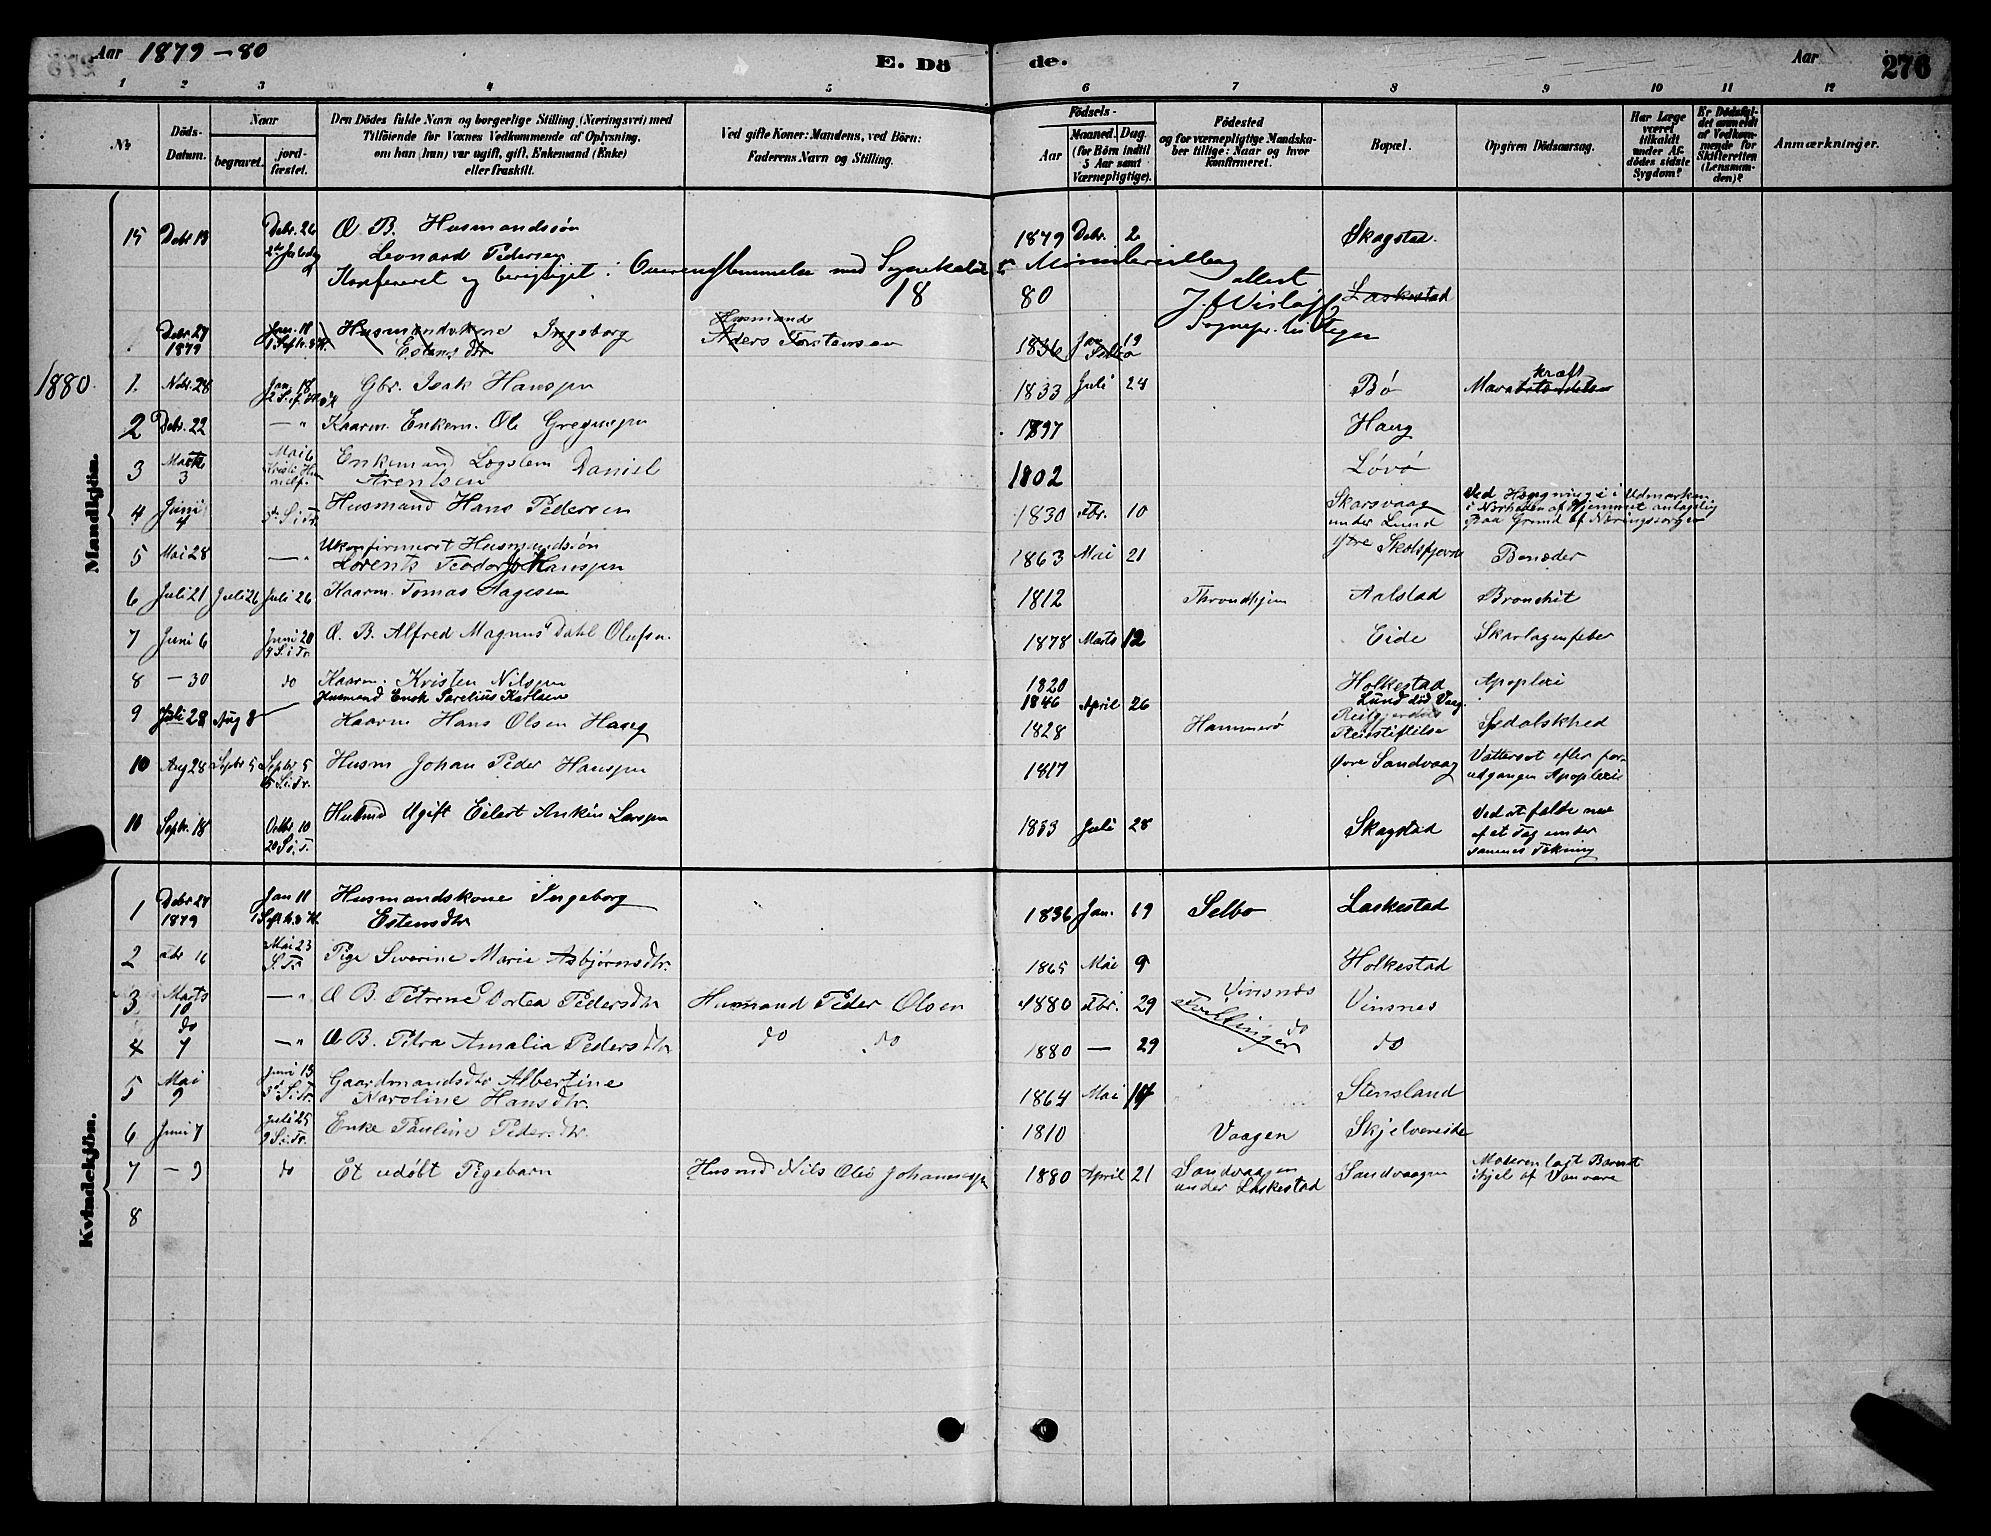 Aar 1879–80
E. Dö
de.
Aar
276
1 2 3 4 5 6 7 8 9 10 11 12
No
Döds-
Datum.
Naar
begravet.
jord-
fæstet.
Den Dödes fulde Navn og borgerlige Stilling (Næringsvei) med
Tilföiende for Voxnes Vedkommende af Oplysning,
om han (hun) var ugift, gift, Enkemand (Enke)
eller fraskilt.
Ved gifte Koner: Mandens, ved Börn:
Faderens Navn og Stilling.
Födsels-
Aar
Maaned. Dag.
(for Börn indtil
5 Aar samt
Værnepligtige).
Födested
og for værnepligtige Mandska-
ber tillige: Naar og hvor
konfirmeret.
Bopæl.
Opgiven Dödsaarsag.
Har Læge
været
tilkaldt
under Af-
dödes sidste
Sygdom?
Er Dödsfal-
det anmeldt
af Vedkom-
mende for
Skifteretten
(Lensman-
den)?
Anmærkninger.
Mandkjön.
15 Debr 18 Debr. 26 Æ B. Husmandssön 1879 Debr. 2 Skagstad.
Leonard Pedersen
Konfereret og berigtiget i Overensstemmelse med
18 80
attest
Laskestad
Debr. 27 1879 Jan. 11 Husmandskone Ingeborg Estensdtr Husmand Torstensen 1836 Jan 19
1880.
1. Nobr. 28 Jan. 18 Gbr. Isak Hanssen 1833 Juli 24 Bö kraft
2 Debr. 22 — " Kaarm. Enkem. Ole 1797 Haug
3 Marts 3 Mai 6 Enkemand Lægslem Daniel 1802 Lövö
4 Juni 4 Husmand Hans Pedersen 1830 Fbr. 10 Skarsvaag under Lund Ved Hængning i Udmarken
i Nærheden af Hjemmet antagelig
paa Grund af Næringssorger
5 Mai 28 — " Ukonfirmeret Husmandssön
Lorents Teodor Hanssen 1863 Mai 21 Ytre
6 Juli 21 Juli 26 Juli 26 Kaarm. Tomas Aagesen 1812 Throndhjem Aalstad Bronchit
7 Juni 6 Juni 20 Æ. B. Alfred Magnus Dahl Olufsn. 1878 Marts 12 Eide Skarlagenfeber
8 — 30 do Kaarm. Kristen Nilssen 1820 Holkestad Apoplexi
Husmand Enok Sarelius Karlsen 1846 April 26 Lund död Vaag.
9 Juli 28 Aug 8 Kaarm Hans Olsen Haug 1828 Hammerö Reitgjerdets
Pleiestiftelse Spedalskhed
10 Aug 28 Septbr 5 Septbr 5 Husm Johan Peder Hanssen 1817 Övre Sandvaag Vattersot efter for-
udgangen Apoplexie
10 Septr. 18 Octbr 10 Husmd Ugift Eilert Ankin Larssen 1833 Juli 28 Skagstad Ved at falde ned
af et Tag under
sammes Tækning
Kvindekjön.
1 Debr 27 1879 Jan 11 Husmandskone Ingeborg
Estensdtr 1836 Jan. 19 Selbo Laskestad
2 16 Mai 23 Pige Siverine Marie Asbjörnsdtr. 1865 Mai 9 Holkestad
3 Marts 10 — " Æ B. Petrine Dortea Pedersdtr Husmand Peder Olsen 1880 Fbr. 29 Vinsnes Vinsnes
4 do 7 — " Æ B. Petra Amalia Pedersdtr do do 1880 — 29 Tvillinger do do
5 Mai 9 Juni 13 Gaardmandsdtr Albertine
Karoline Hansdtr. 1864 Mai 17 Stensland
6 Juni 7 Juli 25 Enke Pauline Pedersdtr. 1810 Vaagen Skjelvereide
7 — 9 do Et udöbt Pigebarn Husmd Nils Olai Johannessen 1880 April 21 Sandvaagen
under Laskestad Sandvaagen Moderen lagt Barnet
ihjel af Vanvare
8